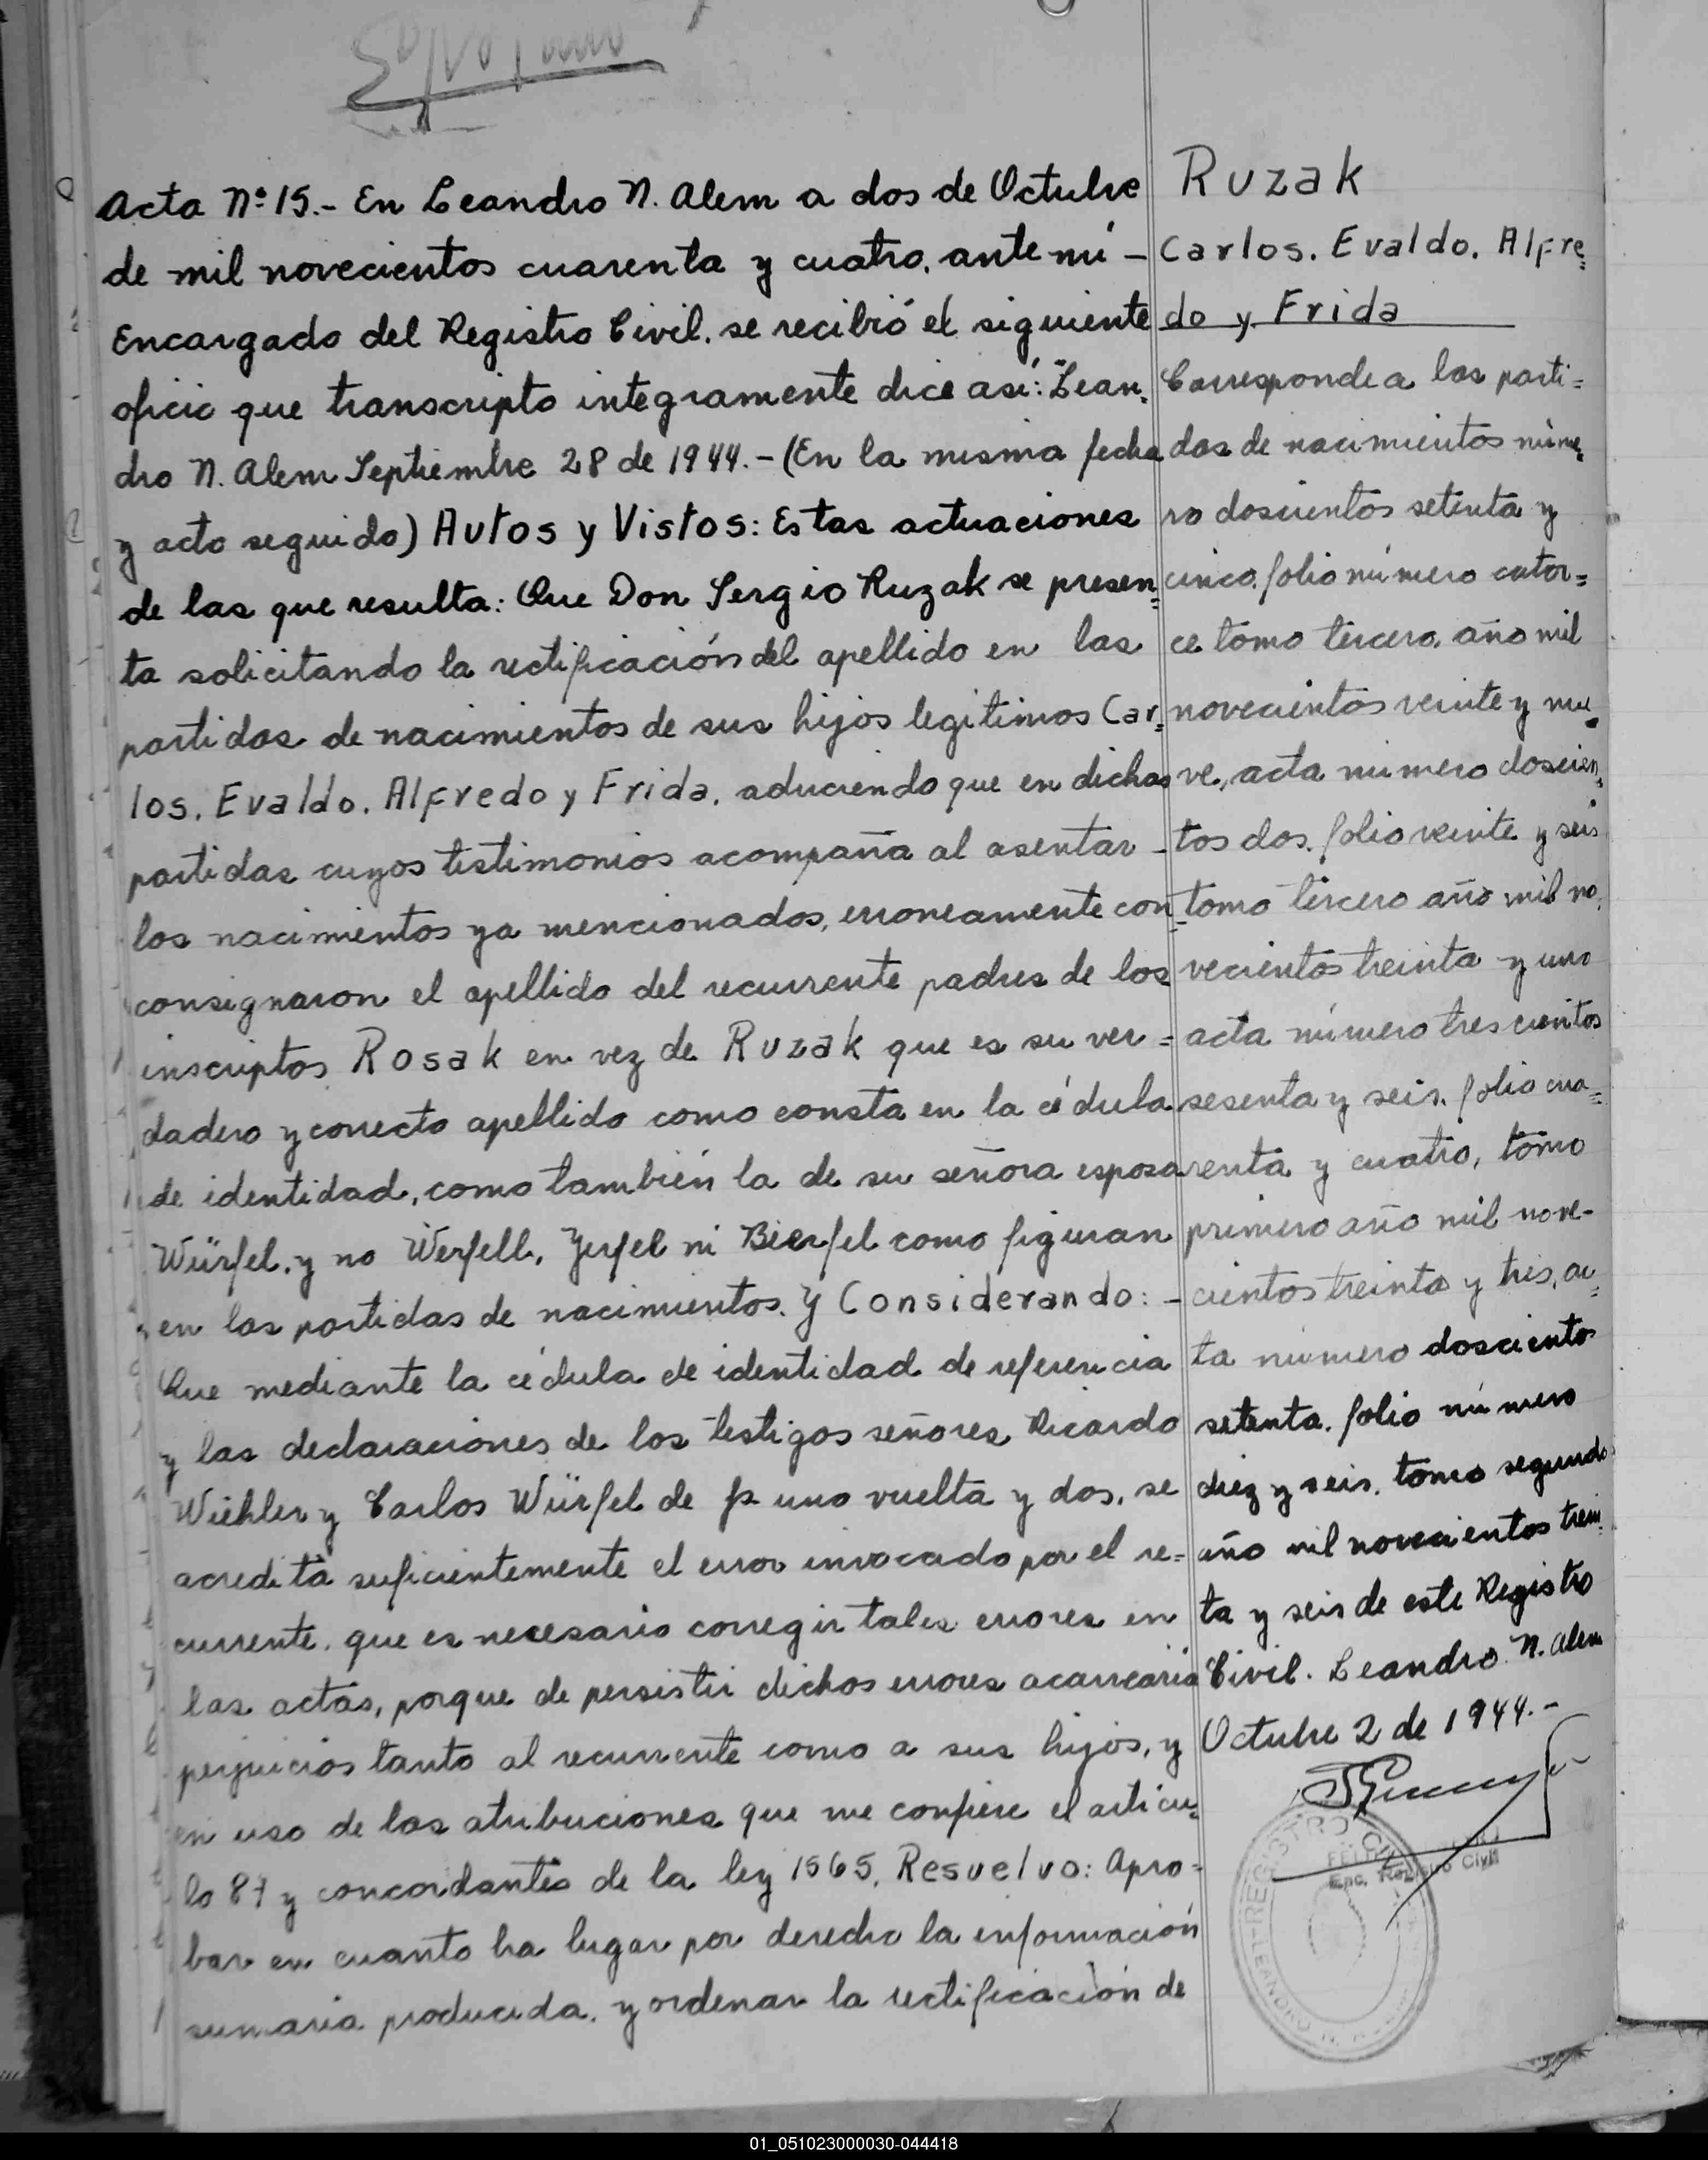 Acta Nº 15.- En Leandro N. Alem a dos de Octubre
de mil novecientos cuarenta y cuatro, ante mí -
Encargado del Registro Civil, se recibió el siguiente
oficio que transcripto integramente dice asi: Lean=
dro N. Alem Septiembre 28 de 1944.- (En la misma fecha
y acto seguido) Autos y Vistos: Estas actuaciones
de las que resulta: Que Don Sergio Ruzak se presen=
ta solicitando la rectificación del apellido en las
partidas de nacimientos de sus hijos legitimos Car=
los, Evaldo, Alfredo y Frida, aduciendo que en dichas
partidas cuyos testimonios acompaña al asentar -
los nacimientos ya mencionados, erroneamente con=
consignaron el apellido del recurrente padres de los
inscriptos Rosak en vez de Ruzak que es su ver =
dadero y correcto apellido como consta en la cédula
de identidad, como también la de su señora esposa
Würfel, y no Werfell, Yerfel ni Bierfel como figuran
en las partidas de nacimientos. Y Considerando: -
Que mediante la cédula de identidad de referencia
y las declaraciones de los testigos señores Ricardo
Wiehler y Carlos Würfel de fs uno vuelta y dos, se
acredita suficientemente el error invocado por el re=
currente, que es necesario corregir tales errores en
las actas, porque de persistir dichos errores acarrearia
perjuicios tanto al recurrente como a sus hijos, y
en uso de las atribuciones que me confiere el articu=
lo 87 y concordantes de la ley 1565, Resuelvo: Apro=
bar en cuanto ha lugar por derecho la información
sumaria producida, y ordenar la rectificación de
Ruzak
Carlos. Evaldo. Alfre=
do y Frida
Corresponde a las parti=
das de nacimientos núme=
ro doscientos setenta y
cinco, folio número cator=
ce tomo tercero, año mil
novecientos veinte y nue=
ve, acta número doscien=
tos dos, folio veinte y seis
tomo tercero año mil no=
vecientos treinta y uno
acta número trescientos
sesenta y seis, folio cua=
renta y cuatro, tomo
primero año mil nove-
cientos treinta y tres, ac=
ta número doscientos
setenta, folio número
diez y seis, tomo segundo
año mil novecientos trein=
ta y seis de este Registro
Civil. Leandro N. Alem
Octubre 2 de 1944.-
Enc. Registro Civil
01_051023000030-044418